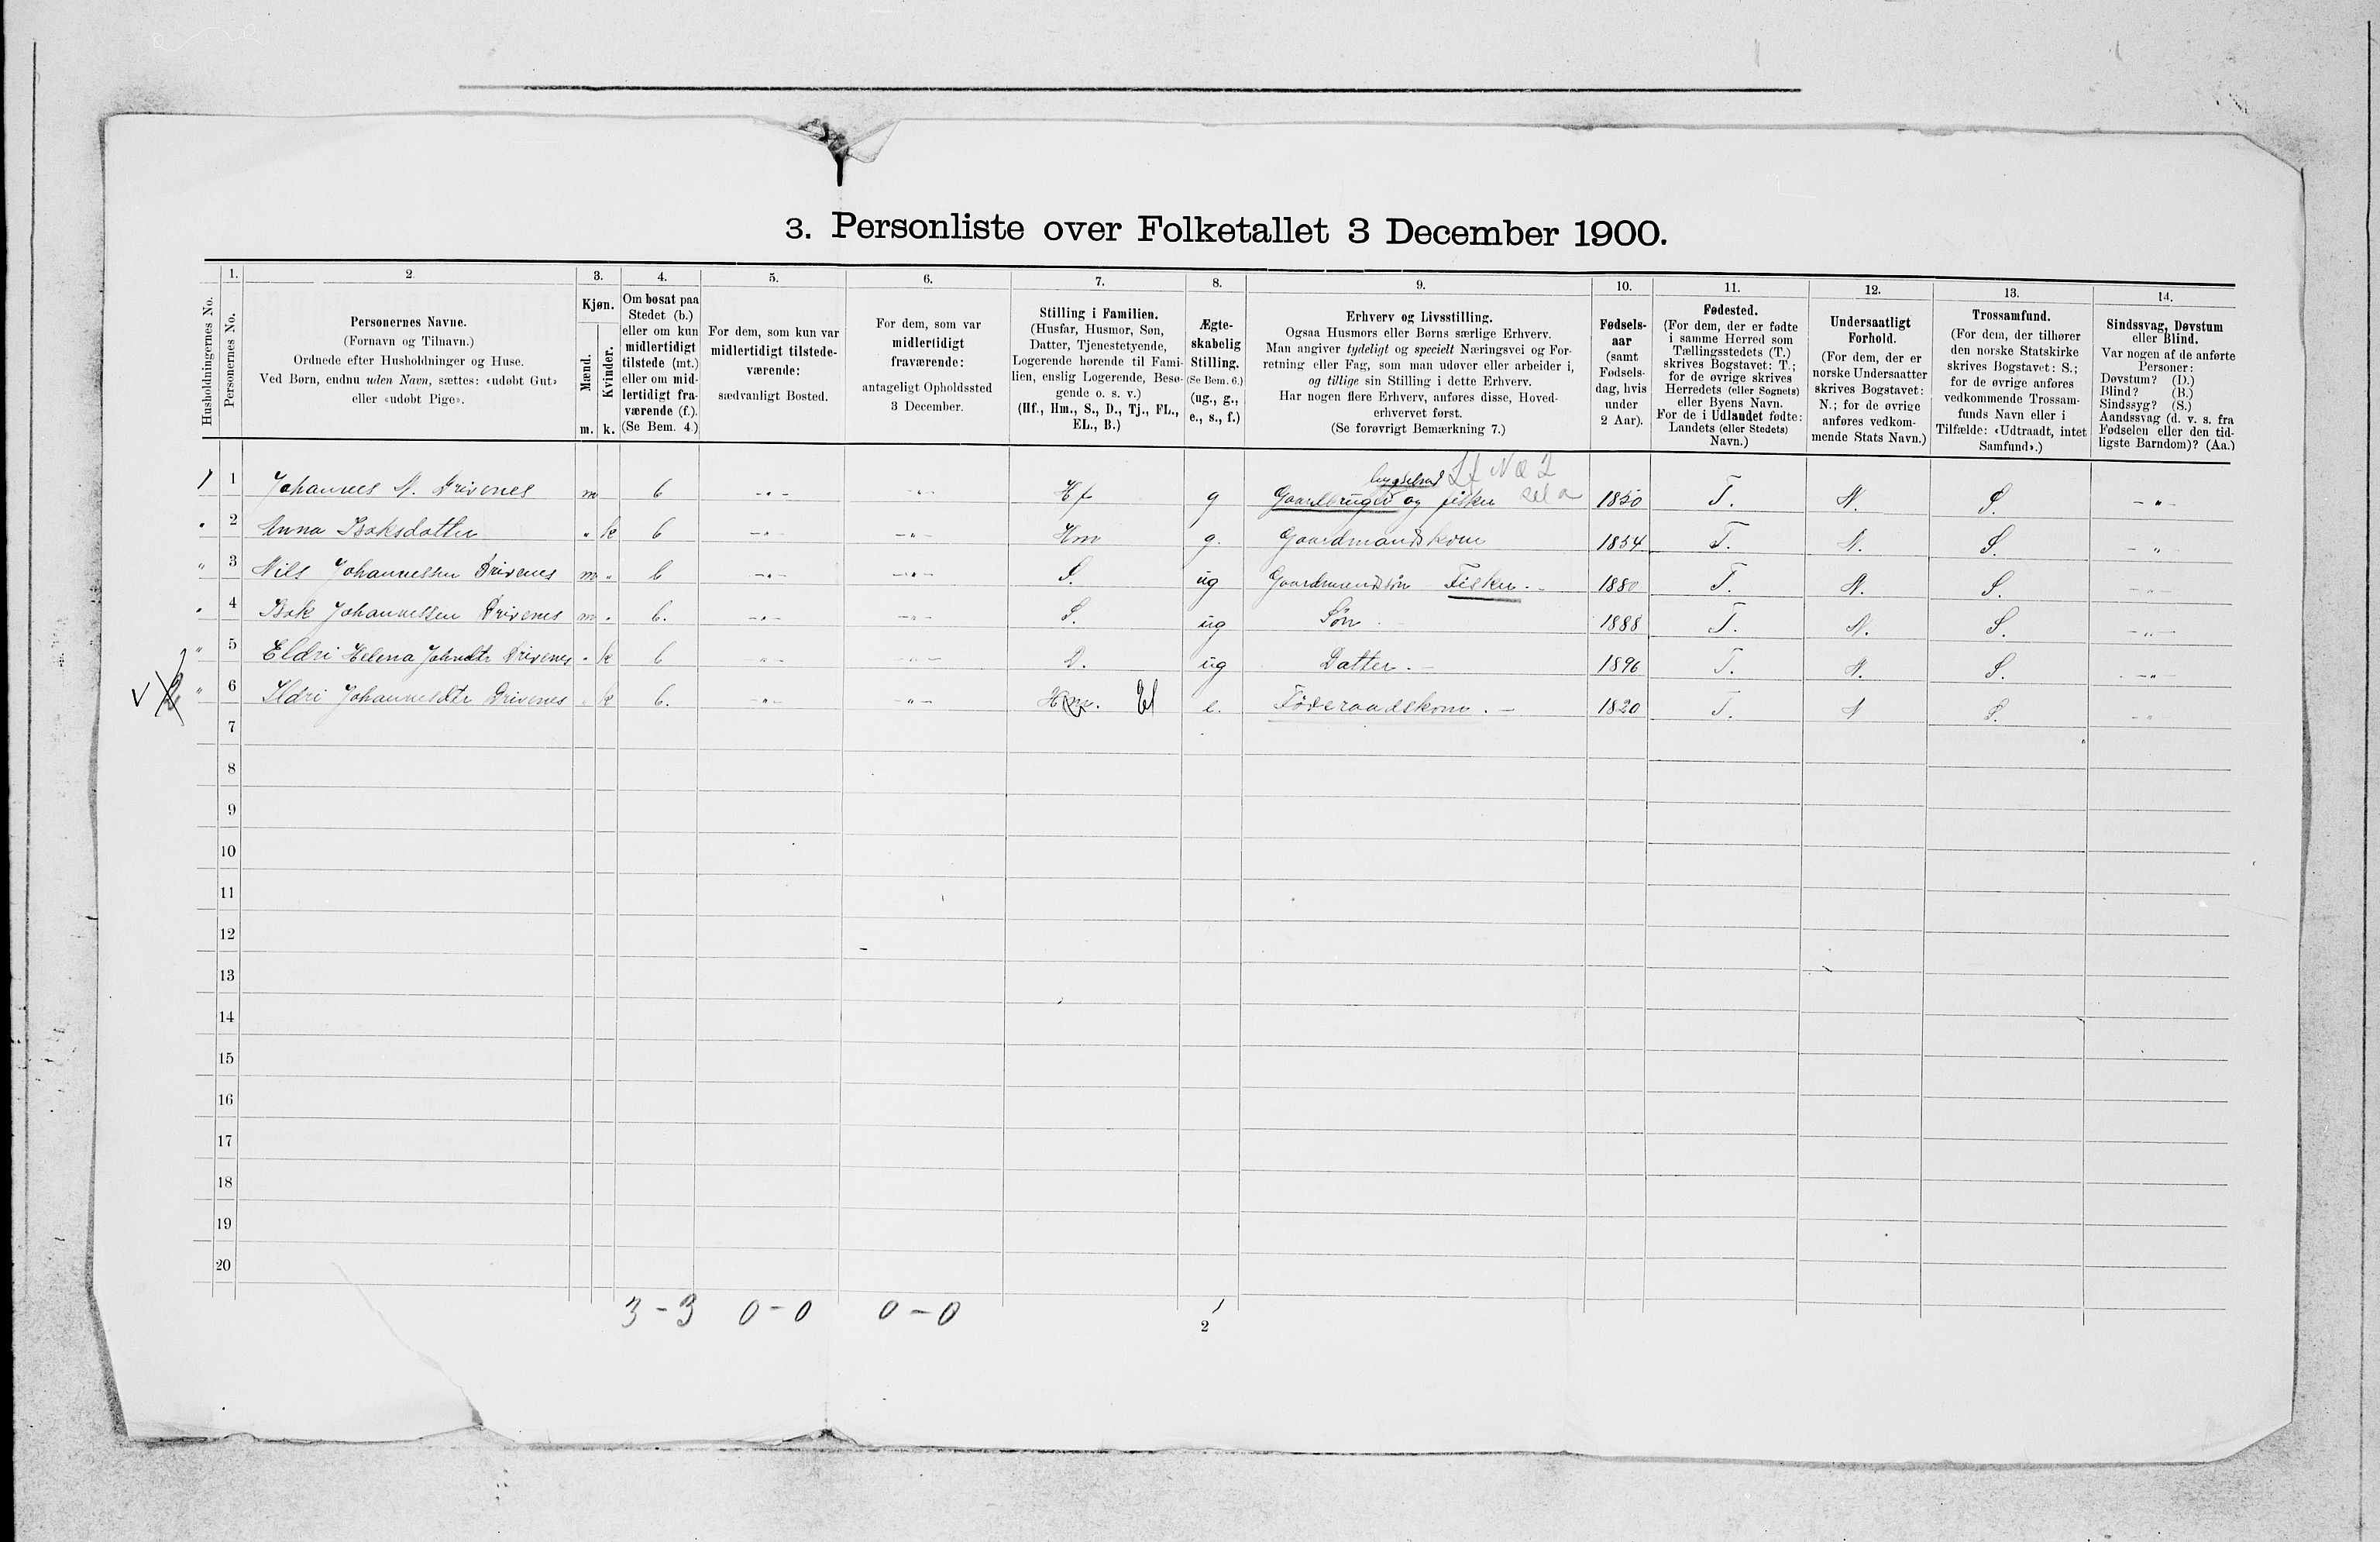 3. Personliste over Folketallet 3 December 1900.
Husholdningernes No.
1. Personernes No.
2. Personernes Navne. (Fornavn og Tilnavn.) Ordnede efter Husholdninger og Huse. Ved Børn, endnu uden Navn, sættes: «udøbt Gut» eller «udøbt Pige».
3. Kjøn. Mænd. m. Kvinder. k.
4. Om bosat paa Stedet (b.) eller om kun midlertidigt tilstede (mt.) eller om midlertidigt fraværende (f.). (Se Bem. 4.)
5. For dem, som kun var midlertidigt tilstedeværende: sædvanligt Bosted.
6. For dem, som var midlertidigt fraværende: antageligt Opholdssted 3 December.
7. Stilling i Familien. (Husfar, Husmor, Søn, Datter, Tjenestetyende, Logerende hørende til Familien, enslig Logerende, Besøgende o. s. v.) (Hf., Hm., S., D., Tj., FL., EL., B.)
8. Ægteskabelig Stilling. (Se Bem. 6.) (ug., g., e., s., f.)
9. Erhverv og Livsstilling. Ogsaa Husmors eller Børns særlige Erhverv. Man angiver tydeligt og specielt Næringsvei og Forretning eller Fag, som man udøver eller arbeider i, og tillige sin Stilling i dette Erhverv. Har nogen flere Erhverv, anføres disse, Hovederhvervet først. (Se forøvrigt Bemærkning 7.)
10. Fødselsaar (samt Fødselsdag, hvis under 2 Aar).
11. Fødested. (For dem, der er fødte i samme Herred som Tællingsstedets (T.) skrives Bogstavet: T.; for de øvrige skrives Herredets (eller Sognets) eller Byens Navn. For de i Udlandet fødte: Landets (eller Stedets) Navn.)
12. Undersaatligt Forhold. (For dem, der er norske Undersaatter skrives Bogstavet: N.; for de øvrige anføres vedkommende Stats Navn.)
13. Trossamfund. (For dem, der tilhører den norske Statskirke skrives Bogstavet: S.; for de øvrige anføres vedkommende Trossamfunds Navn eller i Tilfælde: «Udtraadt, intet Samfund».)
14. Sindssvag, Døvstum eller Blind. Var nogen af de anførte Personer: Døvstum? (D.) Blind? (B.) Sindssyg? (S.) Aandssvag (d. v. s. fra Fødselen eller den tidligste Barndom)? (Aa.)
1 1 Johannes N. Drivenes m b - " - - " - Hf g Gaardbruger og fisker 1850 T. N. S. - " -
" 2 Anna Isaksdatter " k b - " - - " - Hm g. Gaardmandskone 1854 T. N. S. - " -
" 3 Nils Johannessen Drivenes m " b - " - - " - S. ug Gaardmandssøn Fisker. 1880 T. N. S. - " -
" 4 Isak Johannessen Drivenes m " b. - " - - " - S. ug Søn 1888 T. N. S. - " -
" 5 Eldri Helena Johansdtr Drivenes " k b - " - - " - D. ug Datter. 1896 T. N. S. - " -
" 6 Ildri Johannesdtr Drivenes " k b. - " - - " - Hm. El e. Føderaadskone. 1820 T. N S. - " -
7
8
9
10
11
12
13
14
15
16
17
18
19
20
3 - 3 0 - 0 0 - 0
2